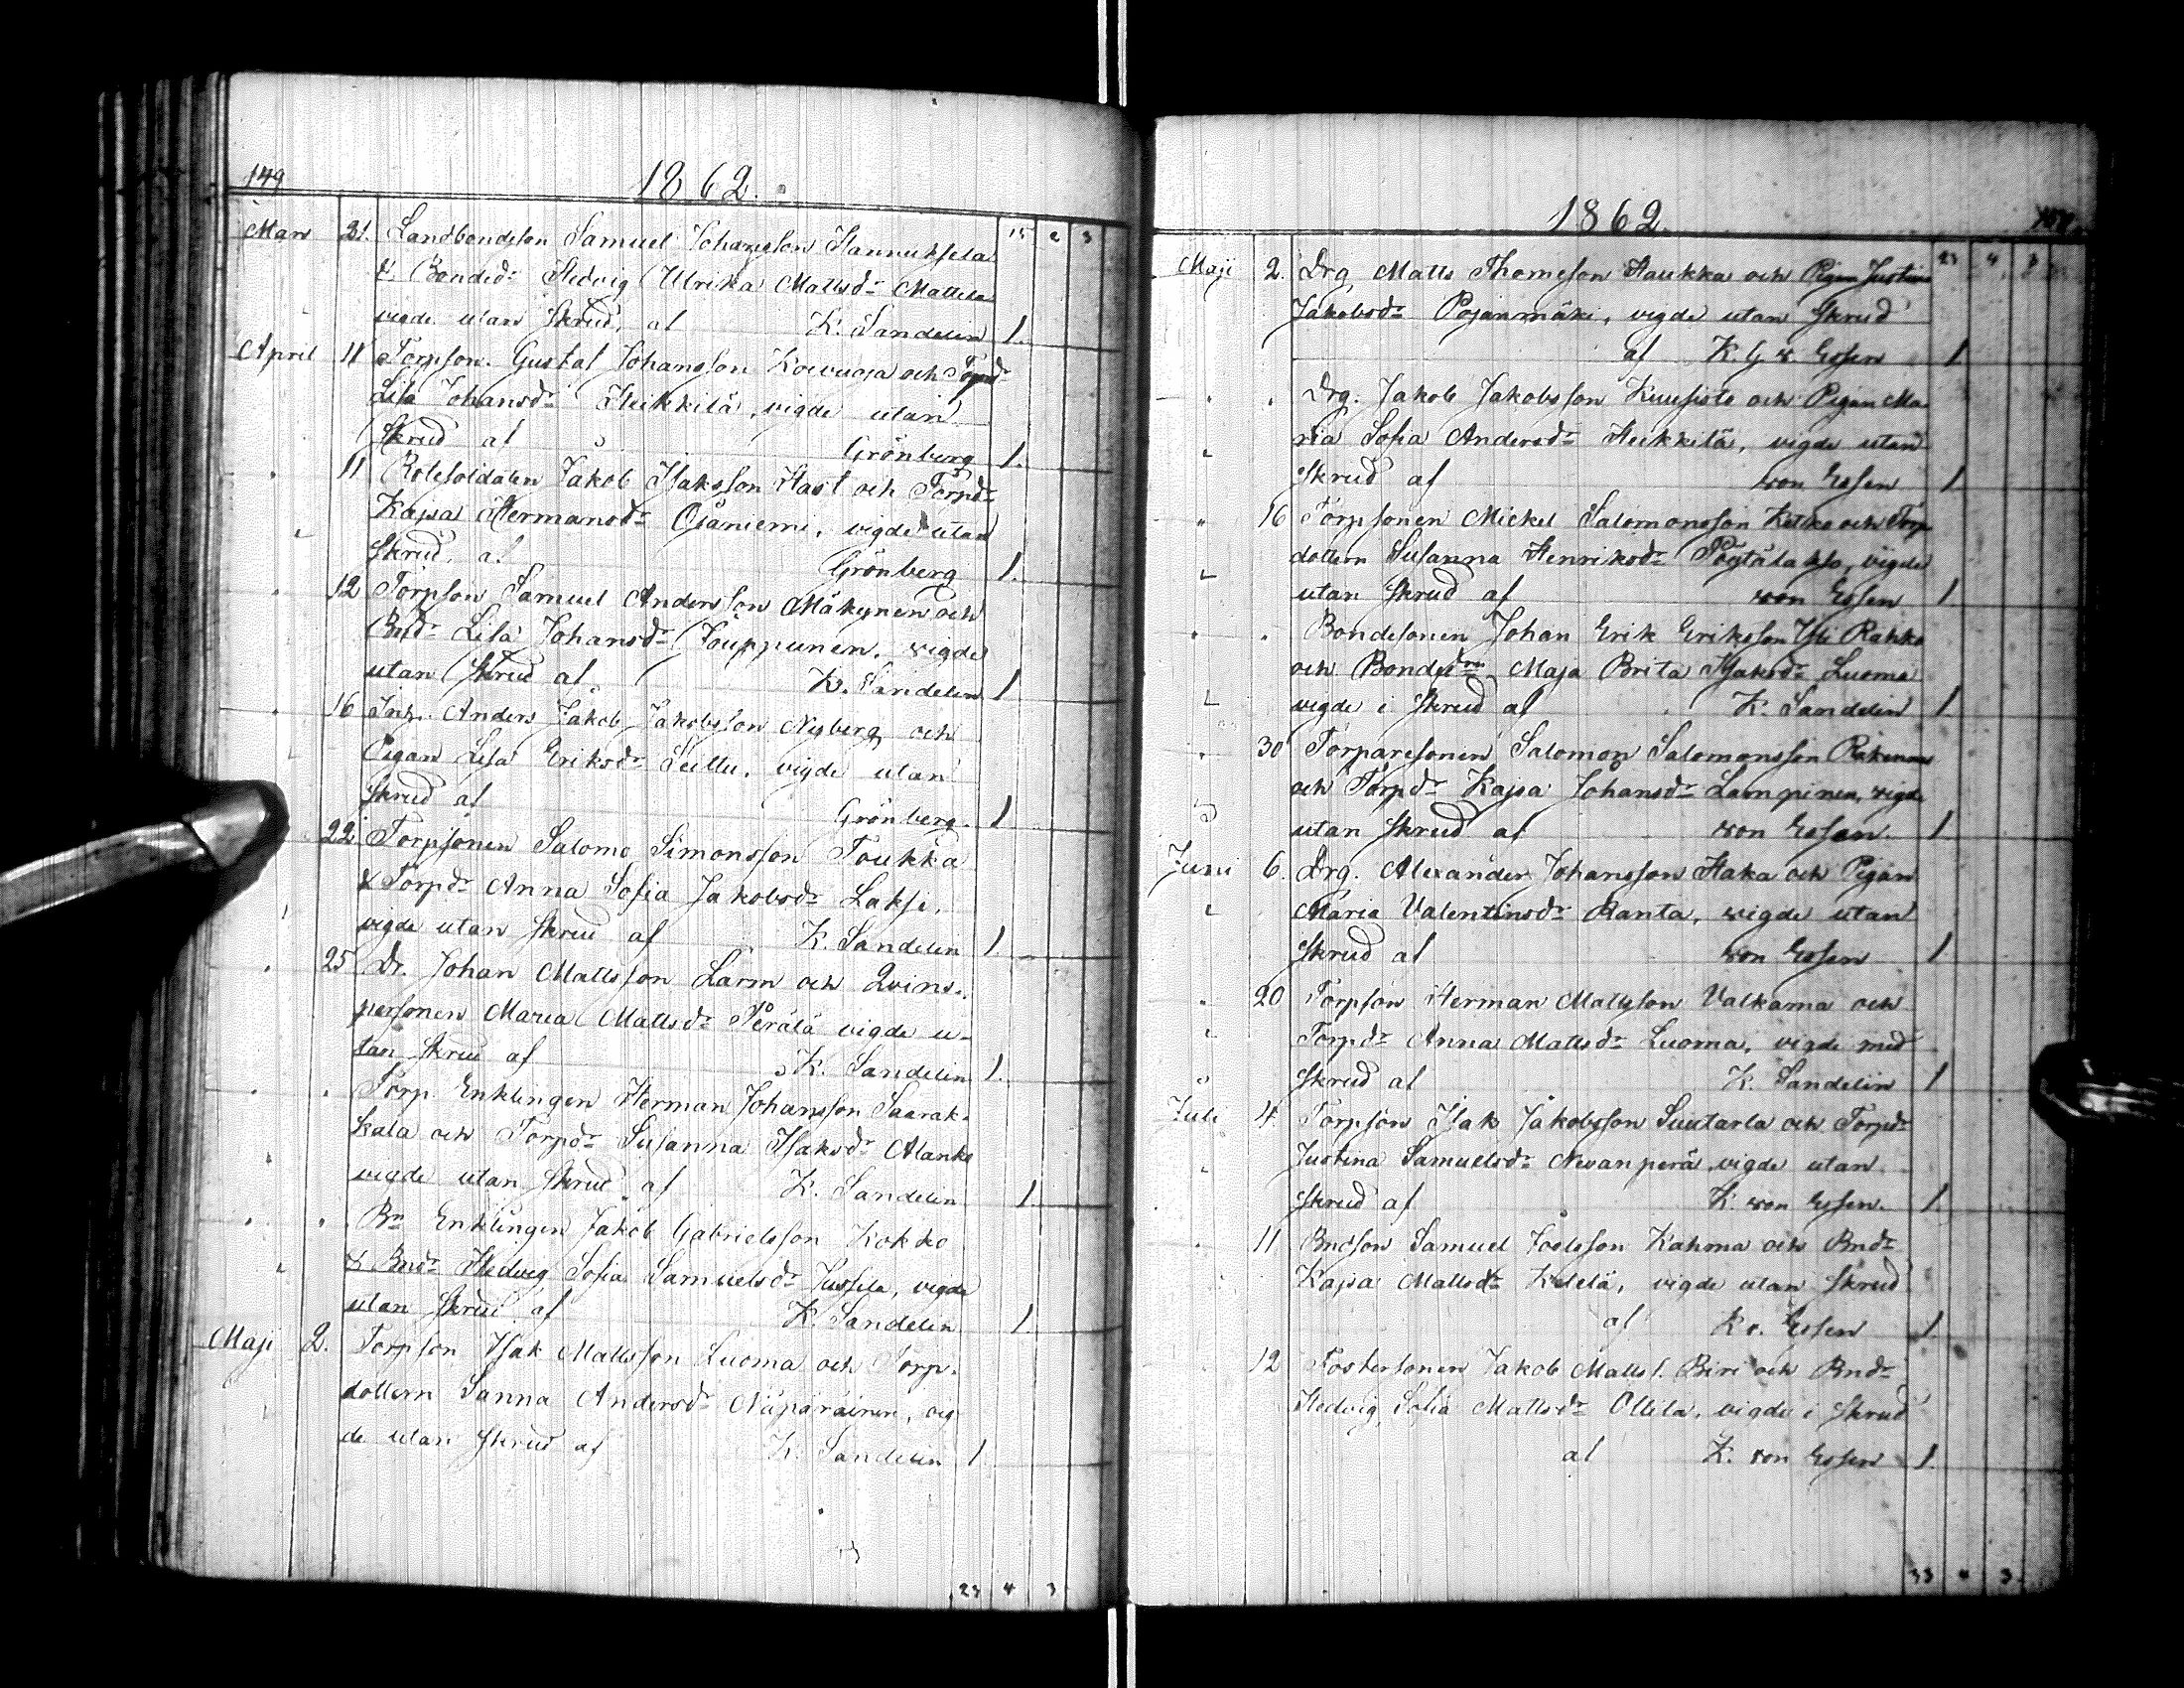 149
1862.
15 2 3
Mars 21. Landbondeson Samuel Johansson Hannuksela
& Bonded:r Hedvig Ulrika Mattsd:r Mattila
vigde utan skrud, af K. Sandelin 1.
April 11 Torpson. Gustaf Johansson Koivuoja och Torpd:r
Lisa Johansd:r Heikkilä, vigde utan
skrud af Grönberg 1.
11 Rotesoldaten Jakob Isaksson Hast och Torpd:r
Kajsa Hermansd:r Ojaniemi, vigde utan
skrud, af Grönberg 1.
12 Torpson Samuel Andersson Mäkynen och
Bnd:r Lisa Johansd:r Jouppunen, vigde
utan skrud af K. Sandelin 1
16 Inh. Anders Jakob Jakobsson Nyberg och
Pigan Lisa Eriksd:r vigde utan
skrud af Grönberg. 1
22 Torpsonen Salomo Simonsson Toukka
& Torpd:r Anna Sofia Jakobsd:r Laksi,
vigde utan skrud af K. Sandelin 1.
25 Dr. Johan Mattsson Larm och Qvins-
personen Maria Mattsd:r Perälä vigde u-
tan skrud af K. Sandelin 1.
Torp. Enklingen Herman Johansson Saarak-
kala och Torpd:r Susanna Isaksd:r Alanko
vigde utan skrud af K. Sandelin 1.
Bn Enklingen Jakob Gabrielsson Kokko
& Bnd:r Hedvig Sofia Samuelsd:r Jussila, vigde
utan skrud af K. Sandelin 1.
Maji 2. Torpson Isak Mattsson Luoma och Torp-
dottern Sanna Andersd:r Näpäräinen, vig
de utan skrud af K. Sandelin 1
23 4 3
1862
23 4 3
Maji 2. Drg Matts Thomesson Haukka och Pigan Justina
Jakobsd:r Pojanmäki, vigde utan skrud
af K. G v. Essen 1
Drg. Jakob Jakobsson Kuusisto och Pigan Ma-
ria Sofia Andersd:r Heikkilä, vigde utan
skrud af von Essen 1
16 Torpsonen Mickel Salomonsson Ketko och Torp
dottern Susanna Henriksd:r vigde
utan skrud af von Essen 1.
Bondesonen Johan Erik Eriksson Yli Rahko
och Bonded:ren Maja Brita Isaksd:r Luoma
vigde i skrud af K. Sandelin 1.
30 Torparesonen Salomon Salomonsson
och Torpd:r Kajsa Johansd:r Lampinen, vigde
utan skrud af von Essen. 1.
Juni 6. Drg. Alexander Johansson Haka och Pigan
Maria Valentinsd:r Ranta, vigde utan
skrud af von Essen 1.
20 Torpson Herman Mattsson Valkama och
Torpd:r Anna Mattsd:r Luoma, vigde med
skrud af K. Sandelin 1
Juli 4. Torpson Isak Jakobsson Suutarla och Torpd:r
Justina Samuelsd:r Nevanperä, vigde utan
skrud af K. von Essen. 1.
11 Bndson Samuel Joelsson Kahma och Bnd:r
Kajsa Mattsd:r Kelelä, vigde utan skrud
af K v. Essen 1.
12 Fostersonen Jakob Matts s. Biri och Bnd:r
Hedvig Sofia Mattsd:r Ollila, vigde i skrud
af K. von Essen 1.
33 4 3